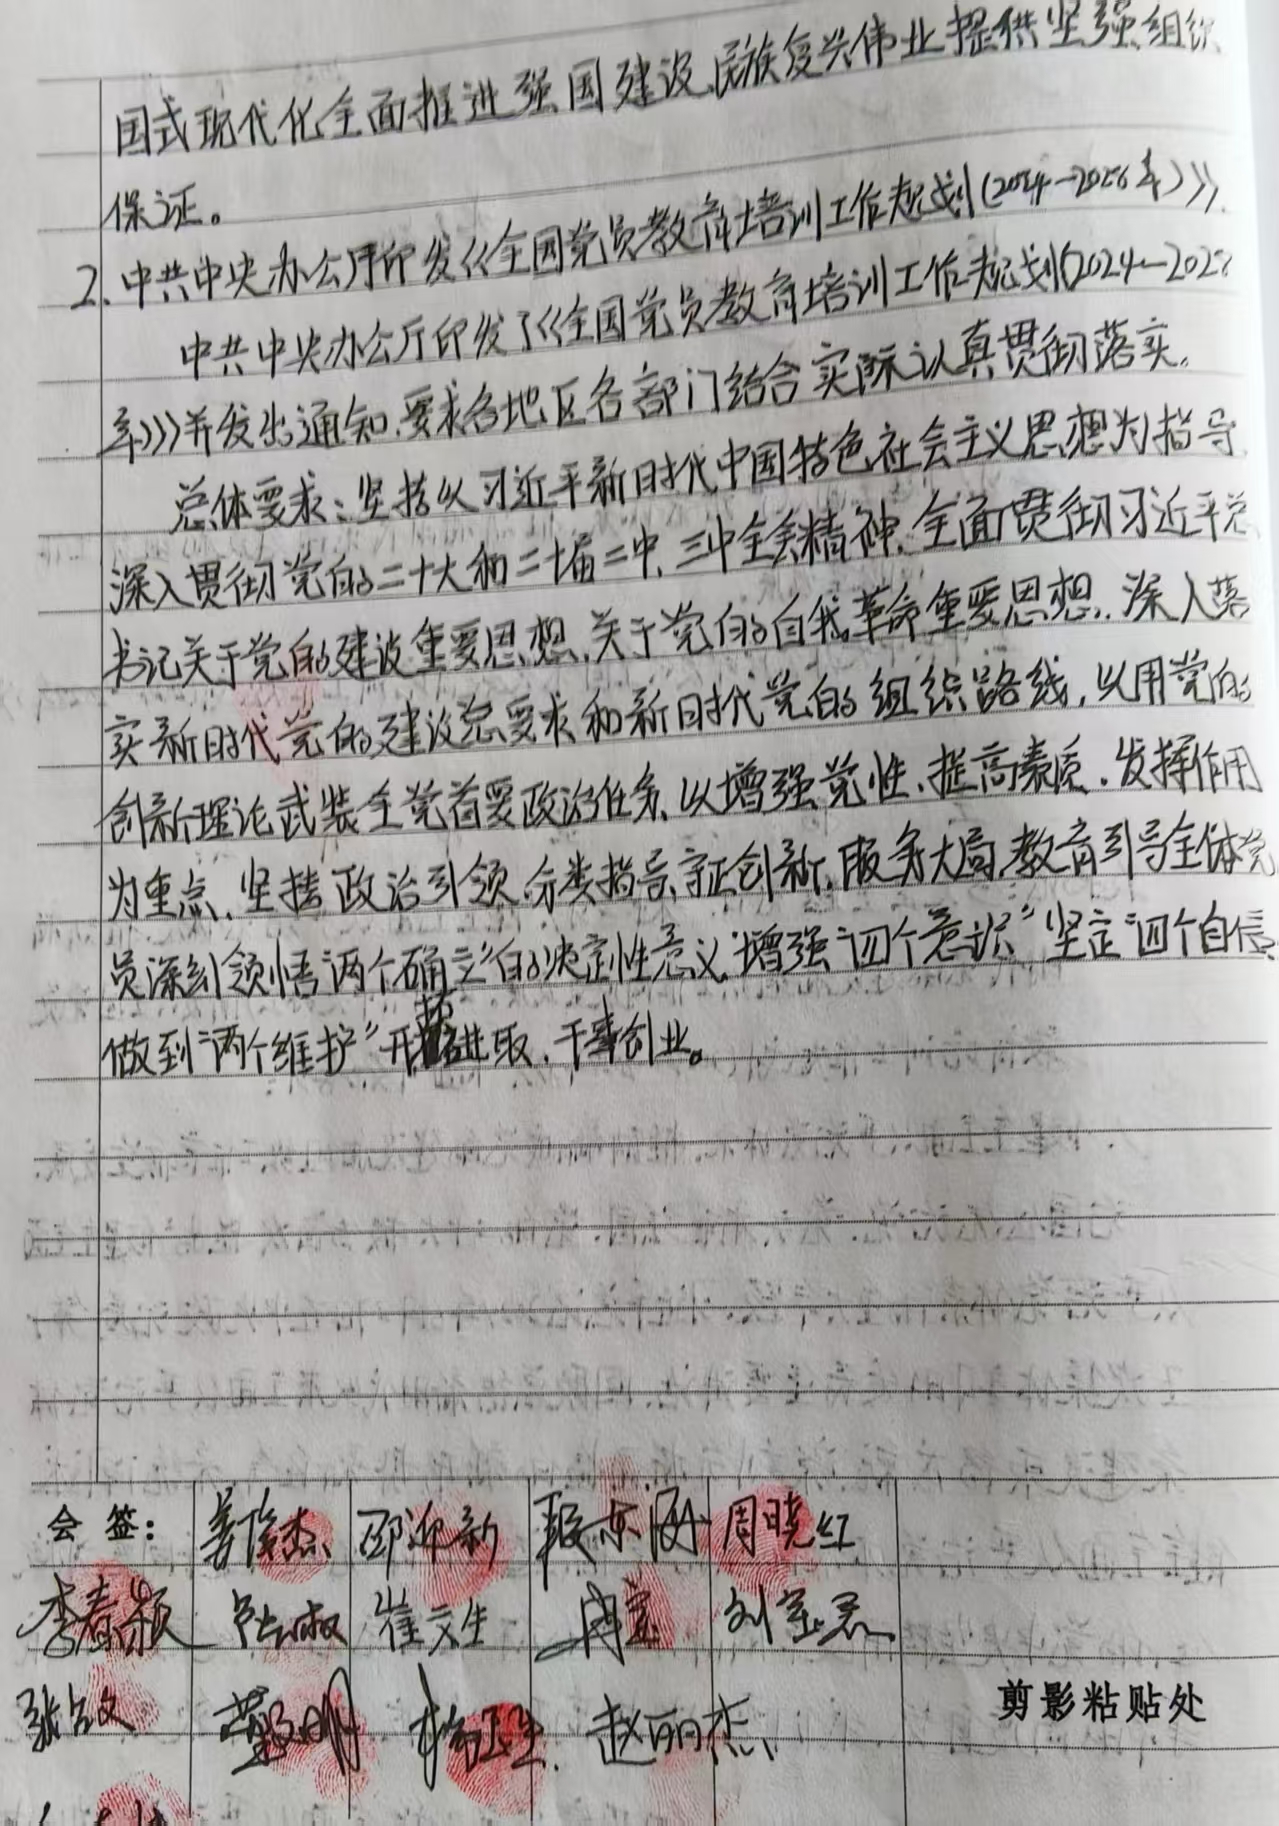 国式现代化全面推进强国建设、民族复兴伟业提供坚强组织
保证。
2.中共中央办公厅印发《全国党员教育培训工作规划(2024—2028年)》
中共中央办公厅印发了《全国党员教育培训工作规划(2024—2028
年)》并发出通知,要求各地区各部门结合实际认真贯彻落实。
总体要求:坚持以习近平新时代中国特色社会主义思想为指导,
深入贯彻党的二十大和二十届二中、三中全会精神,全面贯彻习近平总
书记关于党的建设重要思想、关于党的自我革命重要思想,深入落
实新时代党的建设总要求和新时代党的组织路线,以用党的
创新理论武装全党首要政治任务,以增强党性、提高素质、发挥作用
为重点,坚持政治引领、分类指导、守正创新、服务大局,教育引导全体党
员深刻领悟“两个确立”的决定性意义,增强“四个意识”坚定“四个自信
做到“两个维护”开拓进取、干事创业。
会 签: 姜俊杰 邵迎新 段东海 周晓红
李春颖 崔文生 周宝
张占文 杨玉生 赵丽杰
剪影粘贴处